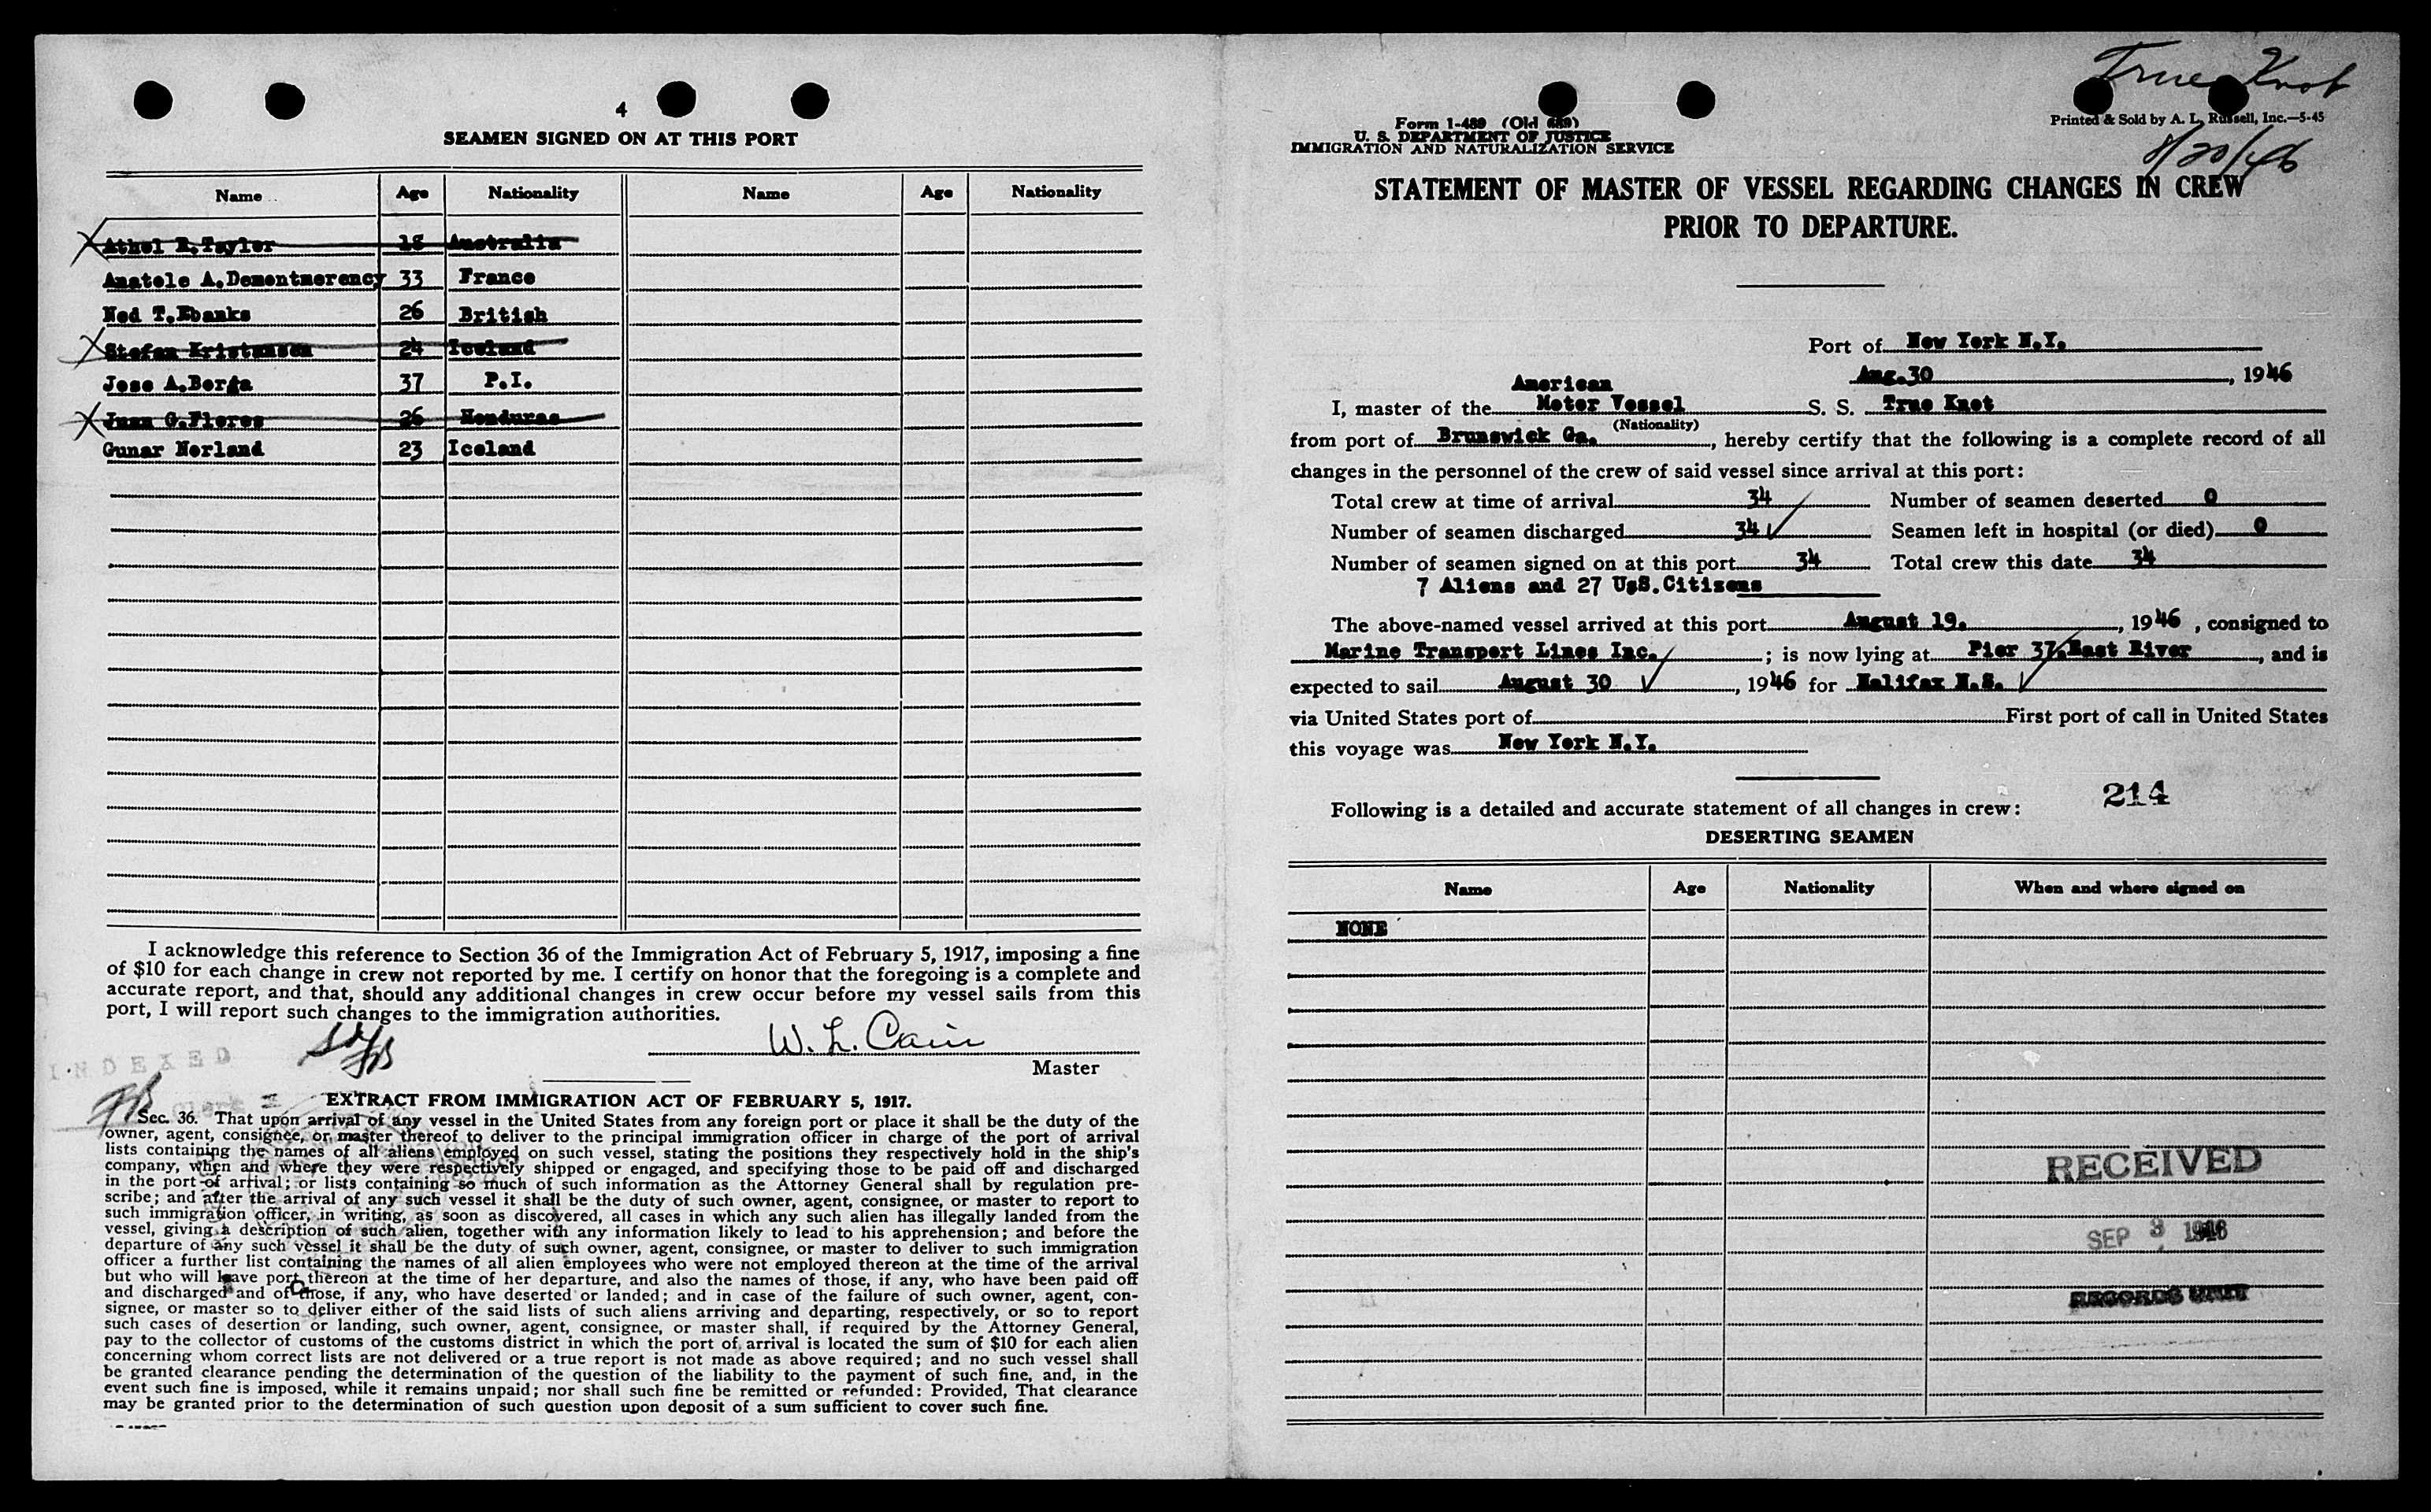 4
SEAMEN SIGNED ON AT THIS PORT
Name Age Nationality Name Age Nationality
Athol R.Taylor 18 Australia
Anatole A.Demontmerency 33 France
Ned T.Ebanks 26 British
Stefan Kristansen 24 Iceland
Jose A.Borja 37 P.I.
Juan G.Flores 26 Honduras
Gunar Norland 23 Iceland
I acknowledge this reference to Section 36 of the Immigration Act of February 5, 1917, imposing a fine
of $10 for each change in crew not reported by me. I certify on honor that the foregoing is a complete and
accurate report, and that, should any additional changes in crew occur before my vessel sails from this
port, I will report such changes to the immigration authorities.
W. L. Cain
Master
INDEXED
EXTRACT FROM IMMIGRATION ACT OF FEBRUARY 5, 1917.
Sec. 36. That upon arrival of any vessel in the United States from any foreign port or place it shall be the duty of the
owner, agent, consignee, or master thereof to deliver to the principal immigration officer in charge of the port of arrival
lists containing the names of all aliens employed on such vessel, stating the positions they respectively hold in the ship's
company, when and where they were respectively shipped or engaged, and specifying those to be paid off and discharged
in the port of arrival; or lists containing so much of such information as the Attorney General shall by regulation pre-
scribe; and after the arrival of any such vessel it shall be the duty of such owner, agent, consignee, or master to report to
such immigration officer, in writing, as soon as discovered, all cases in which any such alien has illegally landed from the
vessel, giving a description of such alien, together with any information likely to lead to his apprehension; and before the
departure of any such vessel it shall be the duty of such owner, agent, consignee, or master to deliver to such immigration
officer a further list containing the names of all alien employees who were not employed thereon at the time of the arrival
but who will leave port thereon at the time of her departure, and also the names of those, if any, who have been paid off
and discharged and of those, if any, who have deserted or landed; and in case of the failure of such owner, agent, con-
signee, or master so to deliver either of the said lists of such aliens arriving and departing, respectively, or so to report
such cases of desertion or landing, such owner, agent, consignee, or master shall, if required by the Attorney General,
pay to the collector of customs of the customs district in which the port of arrival is located the sum of $10 for each alien
concerning whom correct lists are not delivered or a true report is not made as above required; and no such vessel shall
be granted clearance pending the determination of the question of the liability to the payment of such fine, and, in the
event such fine is imposed, while it remains unpaid; nor shall such fine be remitted or refunded: Provided, That clearance
may be granted prior to the determination of such question upon deposit of a sum sufficient to cover such fine.
True Knot
Form 1-489 (Old 689)
U. S. DEPARTMENT OF JUSTICE
IMMIGRATION AND NATURALIZATION SERVICE
Printed & Sold by A. L. Russell, Inc.—5-45
8/20/46
STATEMENT OF MASTER OF VESSEL REGARDING CHANGES IN CREW
PRIOR TO DEPARTURE.
Port of New York N.Y.
Aug.30, 1946
American
I, master of the Motor Vessel S. S. True Knot
(Nationality)
from port of Brunswick Ga., hereby certify that the following is a complete record of all
changes in the personnel of the crew of said vessel since arrival at this port:
Total crew at time of arrival 34 Number of seamen deserted 0
Number of seamen discharged 34 Seamen left in hospital (or died) 0
Number of seamen signed on at this port 34 Total crew this date 34
7 Aliens and 27 U.S.Citizens
The above-named vessel arrived at this port August 19., 1946, consigned to
Marine Transport Lines Inc.; is now lying at Pier 37.East River, and is
expected to sail August 30, 1946 for Halifax N.S.
via United States port of First port of call in United States
this voyage was New York N.Y.
214
Following is a detailed and accurate statement of all changes in crew:
DESERTING SEAMEN
Name Age Nationality When and where signed on
NONE
RECEIVED
SEP 3 1946
RECORDS UNIT